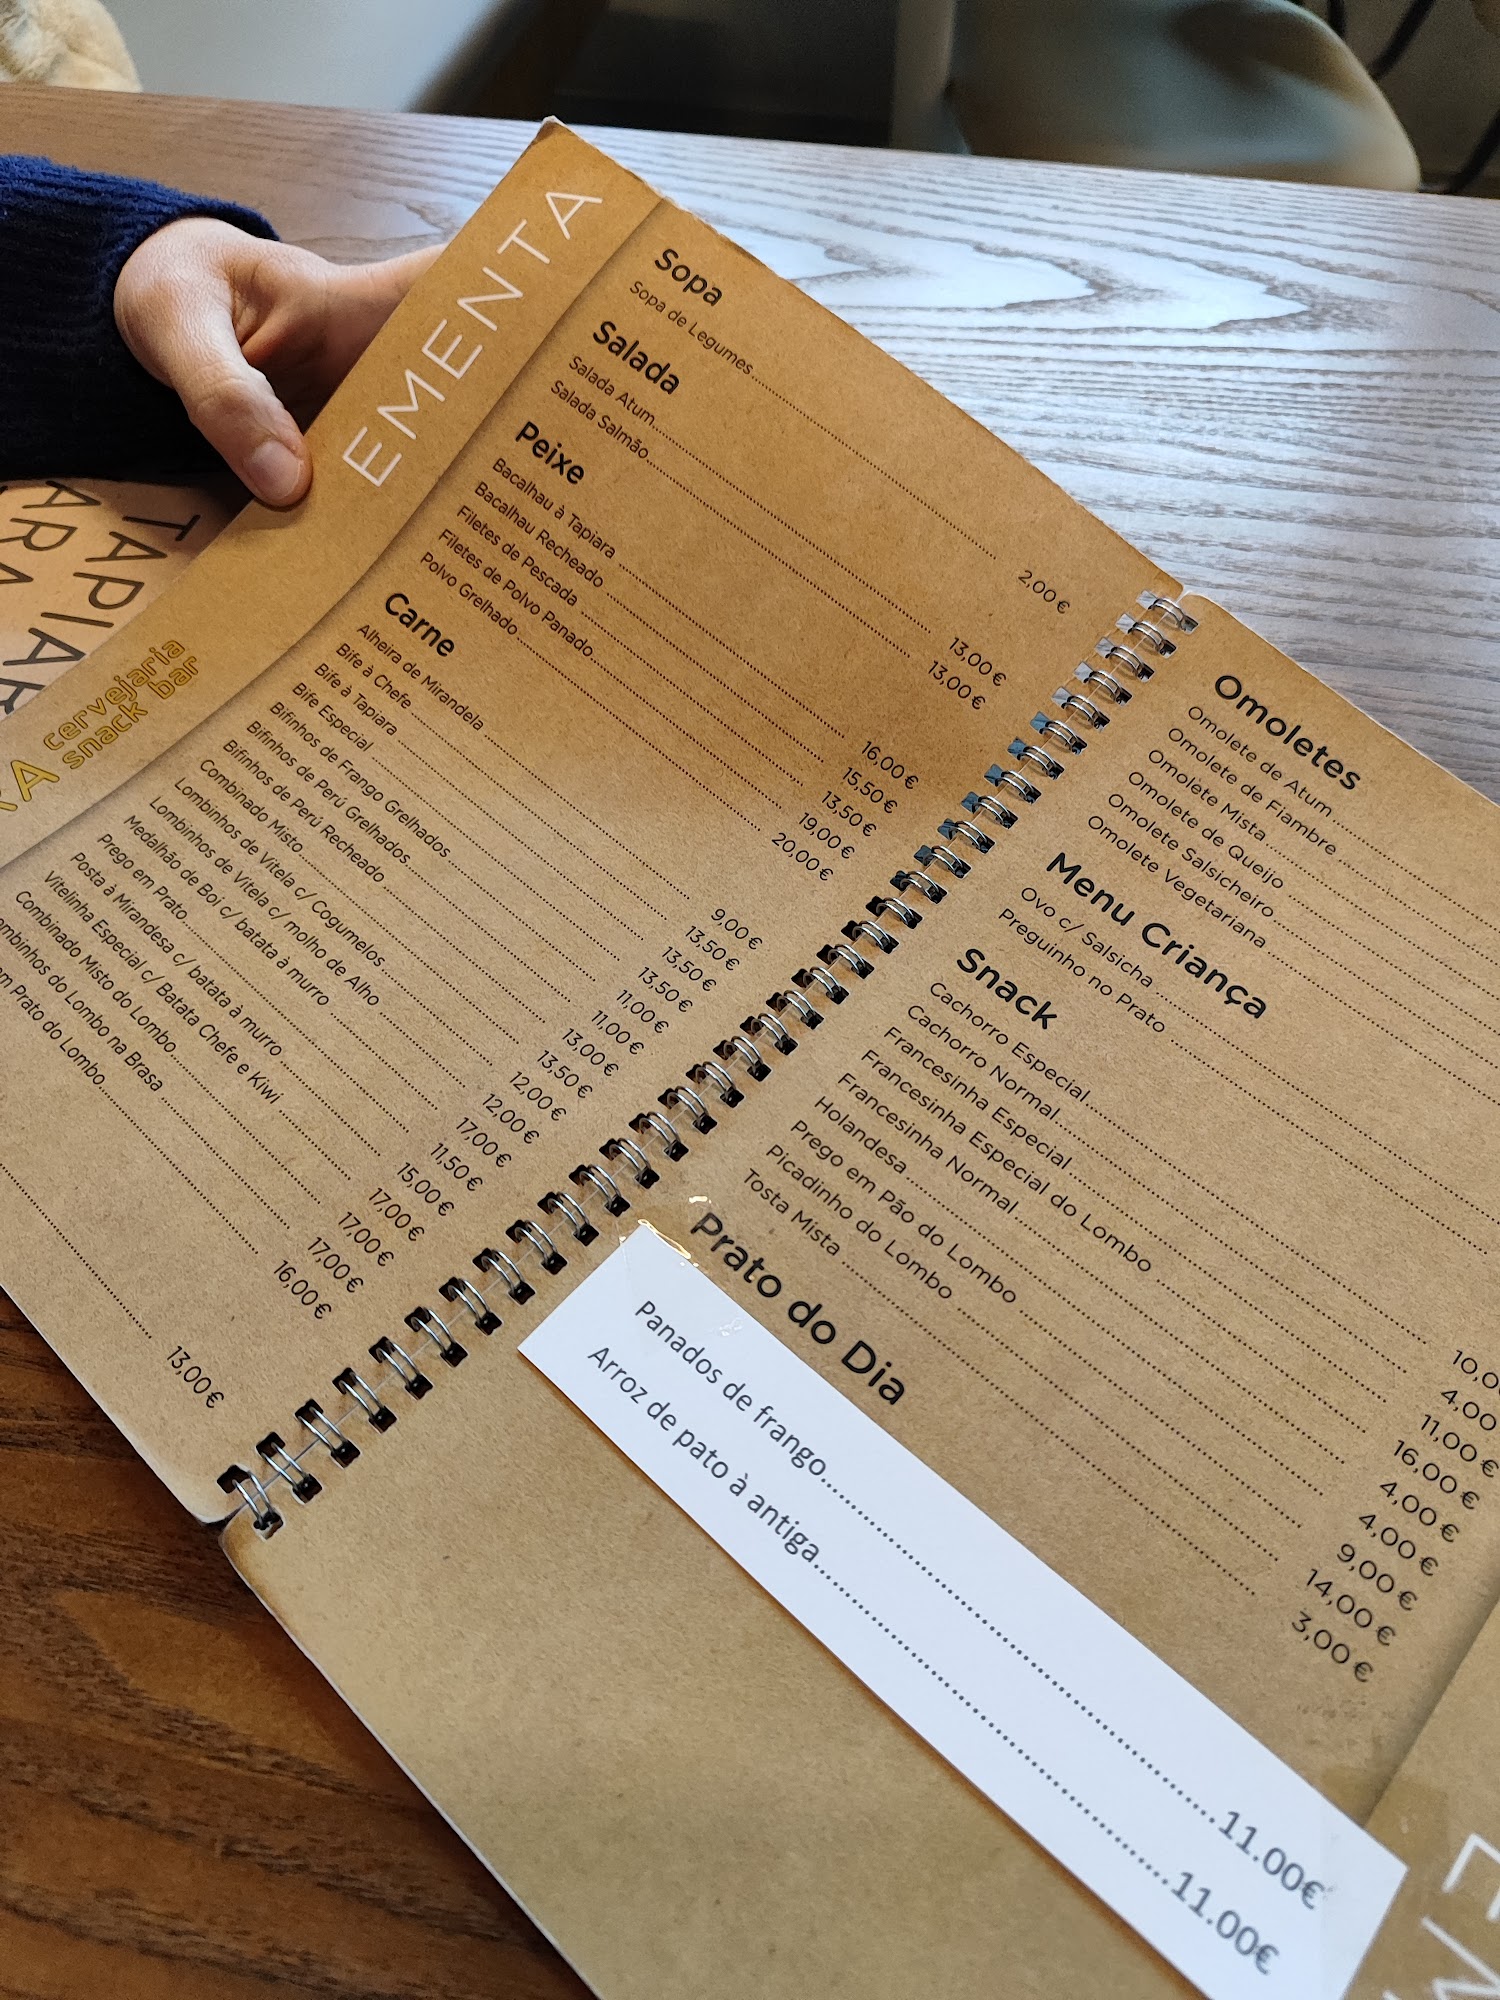 EMENTA
Sopa
Sopa de Legumes 2,00€
Salada
Salada Atum 13,00€
Salada Salmão 13,00€
Peixe
Bacalhau à Tapiara 16,00€
Bacalhau Recheado 15,50€
Filetes de Pescada 13,50€
Filetes de Polvo Panado 19,00€
Polvo Grelhado 20,00€
Carne
Alheira de Mirandela 9,00€
Bife à Chefe 13,50€
Bife à Tapiara 13,50€
Bife Especial 13,50€
Bifinhos de Frango Grelhados 11,00€
Bifinhos de Perú Grelhados 11,00€
Bifinhos de Perú Recheado 13,00€
Combinado Misto 13,50€
Lombinhos de Vitela c/ Cogumelos 12,00€
Lombinhos de Vitela c/ molho de Alho 12,00€
Medalhão de Boi c/ batata à murro 17,00€
Prego em Prato 11,50€
Posta à Mirandesa c/ batata à murro 15,00€
Vitelinha Especial c/ Batata Chefe e Kiwi 17,00€
Combinado Misto do Lombo 17,00€
ombinhos do Lombo na Brasa 17,00€
m Prato do Lombo 16,00€
13,00€
RA cervejaria
snack bar
TAPIAR
ARA
Omoletes
Omolete de Atum
Omolete de Fiambre
Omolete Mista
Omolete de Queijo
Omolete Salsicheiro
Omolete Vegetariana
Menu Criança
Ovo c/ Salsicha
Preguinho no Prato
Snack
Cachorro Especial 10,0
Cachorro Normal 4,00
Francesinha Especial 11,00€
Francesinha Especial do Lombo 16,00€
Francesinha Normal 4,00€
Holandesa 4,00€
Prego em Pão do Lombo 9,00€
Picadinho do Lombo 14,00€
Tosta Mista 3,00€
Prato do Dia
Panados de frango 11.00€
Arroz de pato à antiga 11.00€
EM